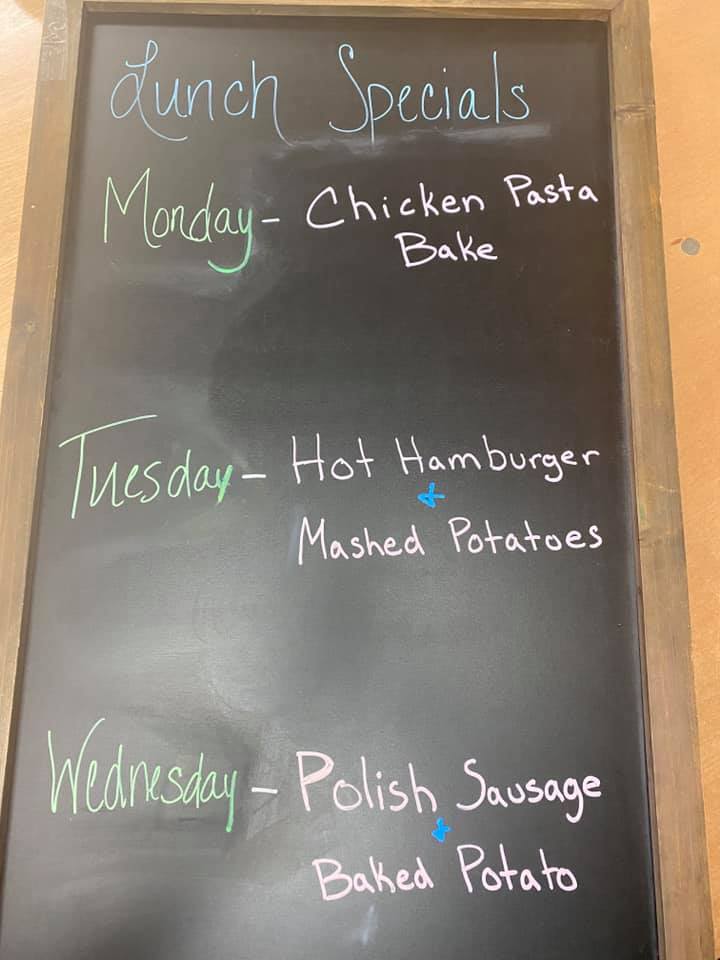 Lunch Specials
Monday - Chicken Pasta
Bake
Tuesday - Hot Hamburger
+
Mashed Potatoes
Wednesday - Polish Sausage
+
Baked Potato